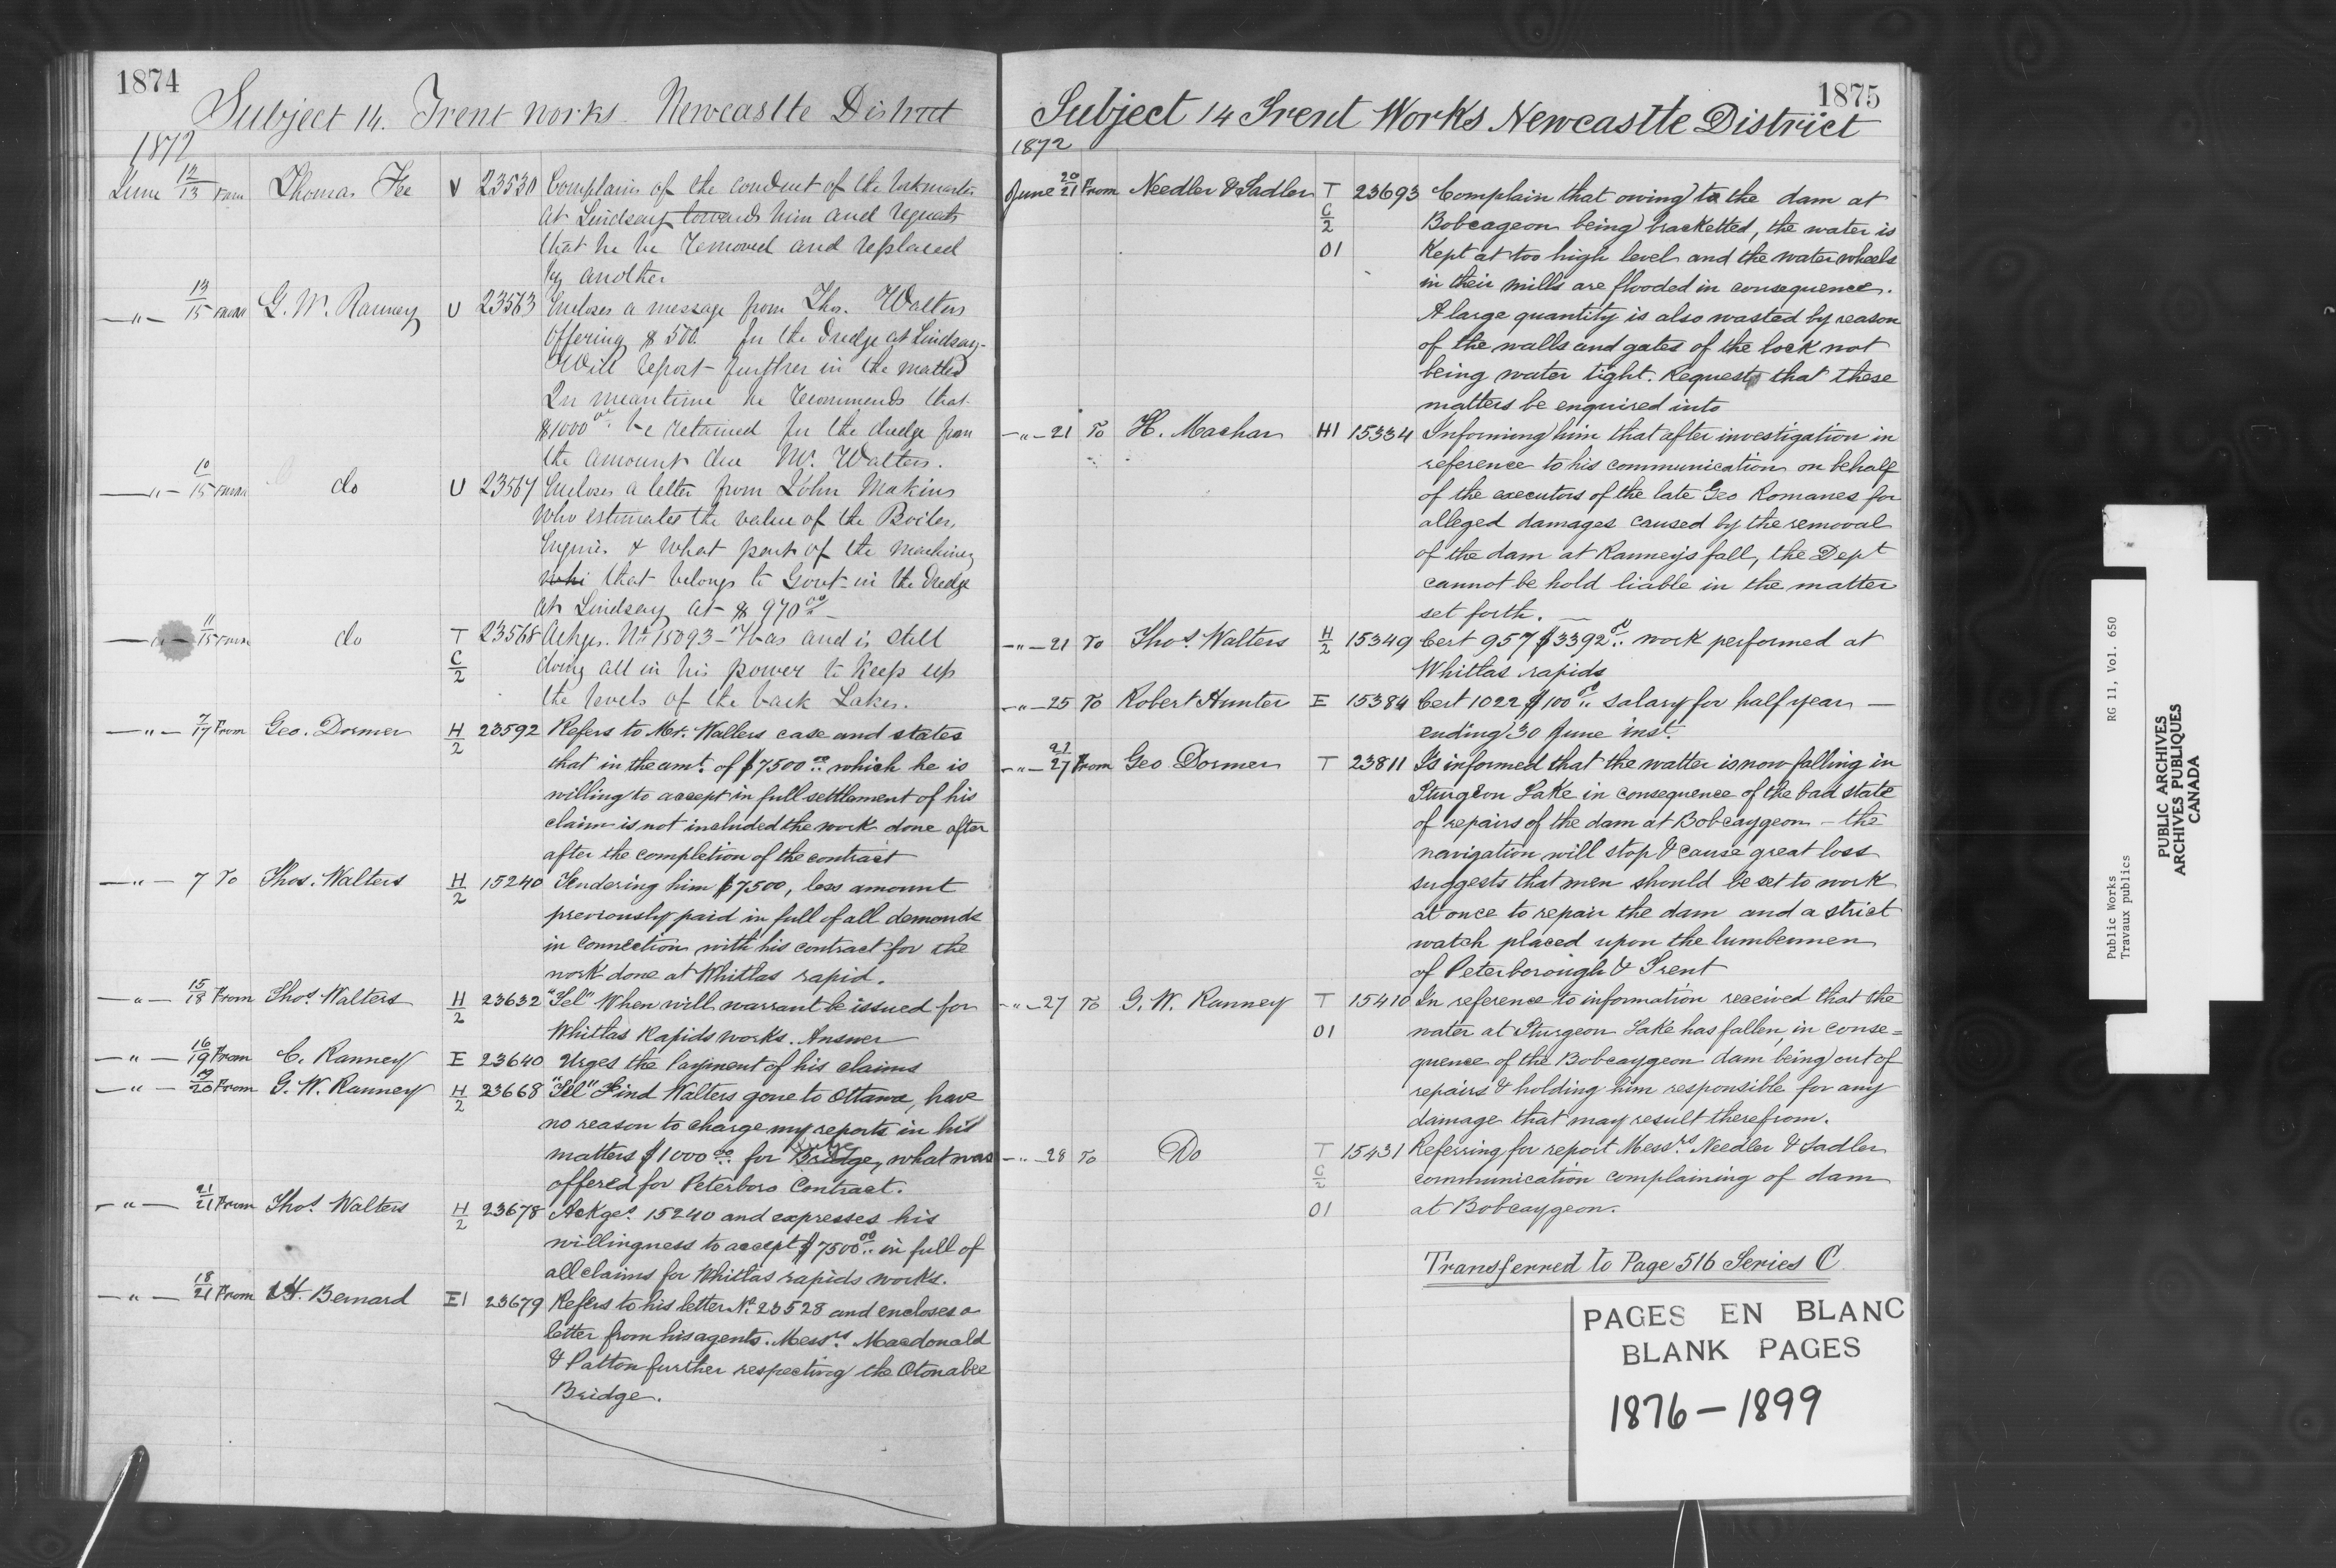 1874
Subject 14. Trent works. Newcastle District
1872
June 12/13 From Thomas Fee V 23530 Complains of the conduct of the Lockmaster
at Lindsay towards him and requests
that he be removed and replaced
by another
—"— 13/15 From G. W. Ranney U 23563 Encloses a message from Thos. Walters
offering $500. for the dredge at Lindsay-
Will report further in the matter
In meantime he recommends that
$1000 00 be retained for the dredge from
the amount due Mr. Walters.
—"— 10/15 From do U 23567 Encloses a letter from John Makins
who estimates the value of the Boiler,
Engines & what part of the machinery
whi that belongs to Govt in the dredge
at Lindsay at $970 00 —
—"— 11/15 From do T C/2 23568 Ackges. No 15093 - Has and is still
doing all in his power to keep up
the levels of the back Lakes.
—"— 7/17 From Geo. Dormer H/2 23592 Refers to Mr. Walters case and states
that in the amt. of $7500 00 which he is
willing to accept in full settlement of his
claim is not included the work done after
after the completion of the contract
—"— 7 To Thos. Walters H/2 15240 Tendering him $7500, less amount
previously paid in full of all demands
in connection with his contract for the
work done at Whitlas rapid.
—"— 15/18 From Thos Walters H/2 23632 "Tel" When will warrant be issued for
Whitlas Rapids works. Answer
—"— 16/19 From C. Ranney E 23640 Urges the Payment of his claims
—"— 19/20 From G. W. Ranney H/2 23668 "Tel" Find Walters gone to Ottawa, have
no reason to charge my reports in his
matters $1000 00 for Bridge, what was
offered for Peterboro Contract.
—"— 21/21 From Thos Walters H/2 23678 Ackges. 15240 and expresses his
willingness to accept $7500 00 in full of
all claims for Whitlas rapids works.
—"— 18/21 From H. Bernard E1 23679 Refers to his letter No 23528 and encloses a
letter from his agents. Messrs. Macdonald
& Patton further respecting the Otonabee
Bridge.
1875
Subject 14 Trent Works Newcastle District
1872
June 20/21 From Needler & Sadler T C/2 01 23693 Complain that owing to the dam at
Bobcageon being bracketted, the water is
Kept at too high level and the water wheels
in their mills are flooded in consequence.
A large quantity is also wasted by reason
of the walls and gates of the lock not
being water tight. Requests that these
matters be enquired into
—"— 21 To H. Machar H1 15334 Informing him that after investigation in
reference to his communication on behalf
of the executors of the late Geo Romanes for
alleged damages caused by the removal
of the dam at Ranney's fall, the Dept
cannot be hold liable in the matter
set forth. —
—"— 21 To Thos. Walters H/2 15349 Cert 957 $3392 00 work performed at
Whitlas rapids
—"— 25 To Robert Hunter E 15384 Cert 1022 $100 00 salary for half year —
ending 30 June inst.
—"— 21/27 From Geo Dormer T 23811 Is informed that the watter is now falling in
Sturgeon Lake in consequence of the bad state
of repairs of the dam at Bobcaygeon - the
navigation will stop & cause great loss
suggests that men should be set to work
at once to repair the dam and a strict
watch placed upon the lumbermen
of Peterborough & Trent
—"— 27 To G. W. Ranney T 01 15410 In reference to information received that the
water at Sturgeon Lake has fallen, in conse=
quence of the Bobcaygeon dam being out of
repairs & holding him responsible for any
damage that may result therefrom.
—"— 28 To Do T C/2 01 15431 Referring for report Messrs. Needler & Sadler
communication complaining of dam
at Bobcaygeon.
Transferred to Page 516 Series C
PAGES EN BLANC
BLANK PAGES
1876 — 1899
Public Works RG 11, Vol. 650
Travaux publics
PUBLIC ARCHIVES
ARCHIVES PUBLIQUES
CANADA